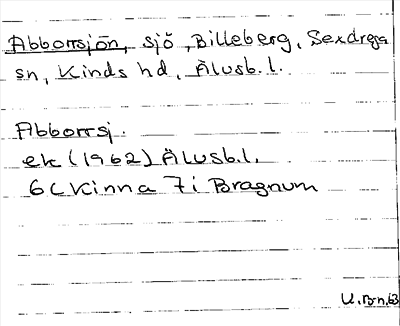 Abborrsjön, sjö, Billeberg, Sexdrega
sn, Kinds hd, Älvsb. l.
Abborrsj.
ek (1962) Älvsb.l.
6C Kinna 7i Bragnum